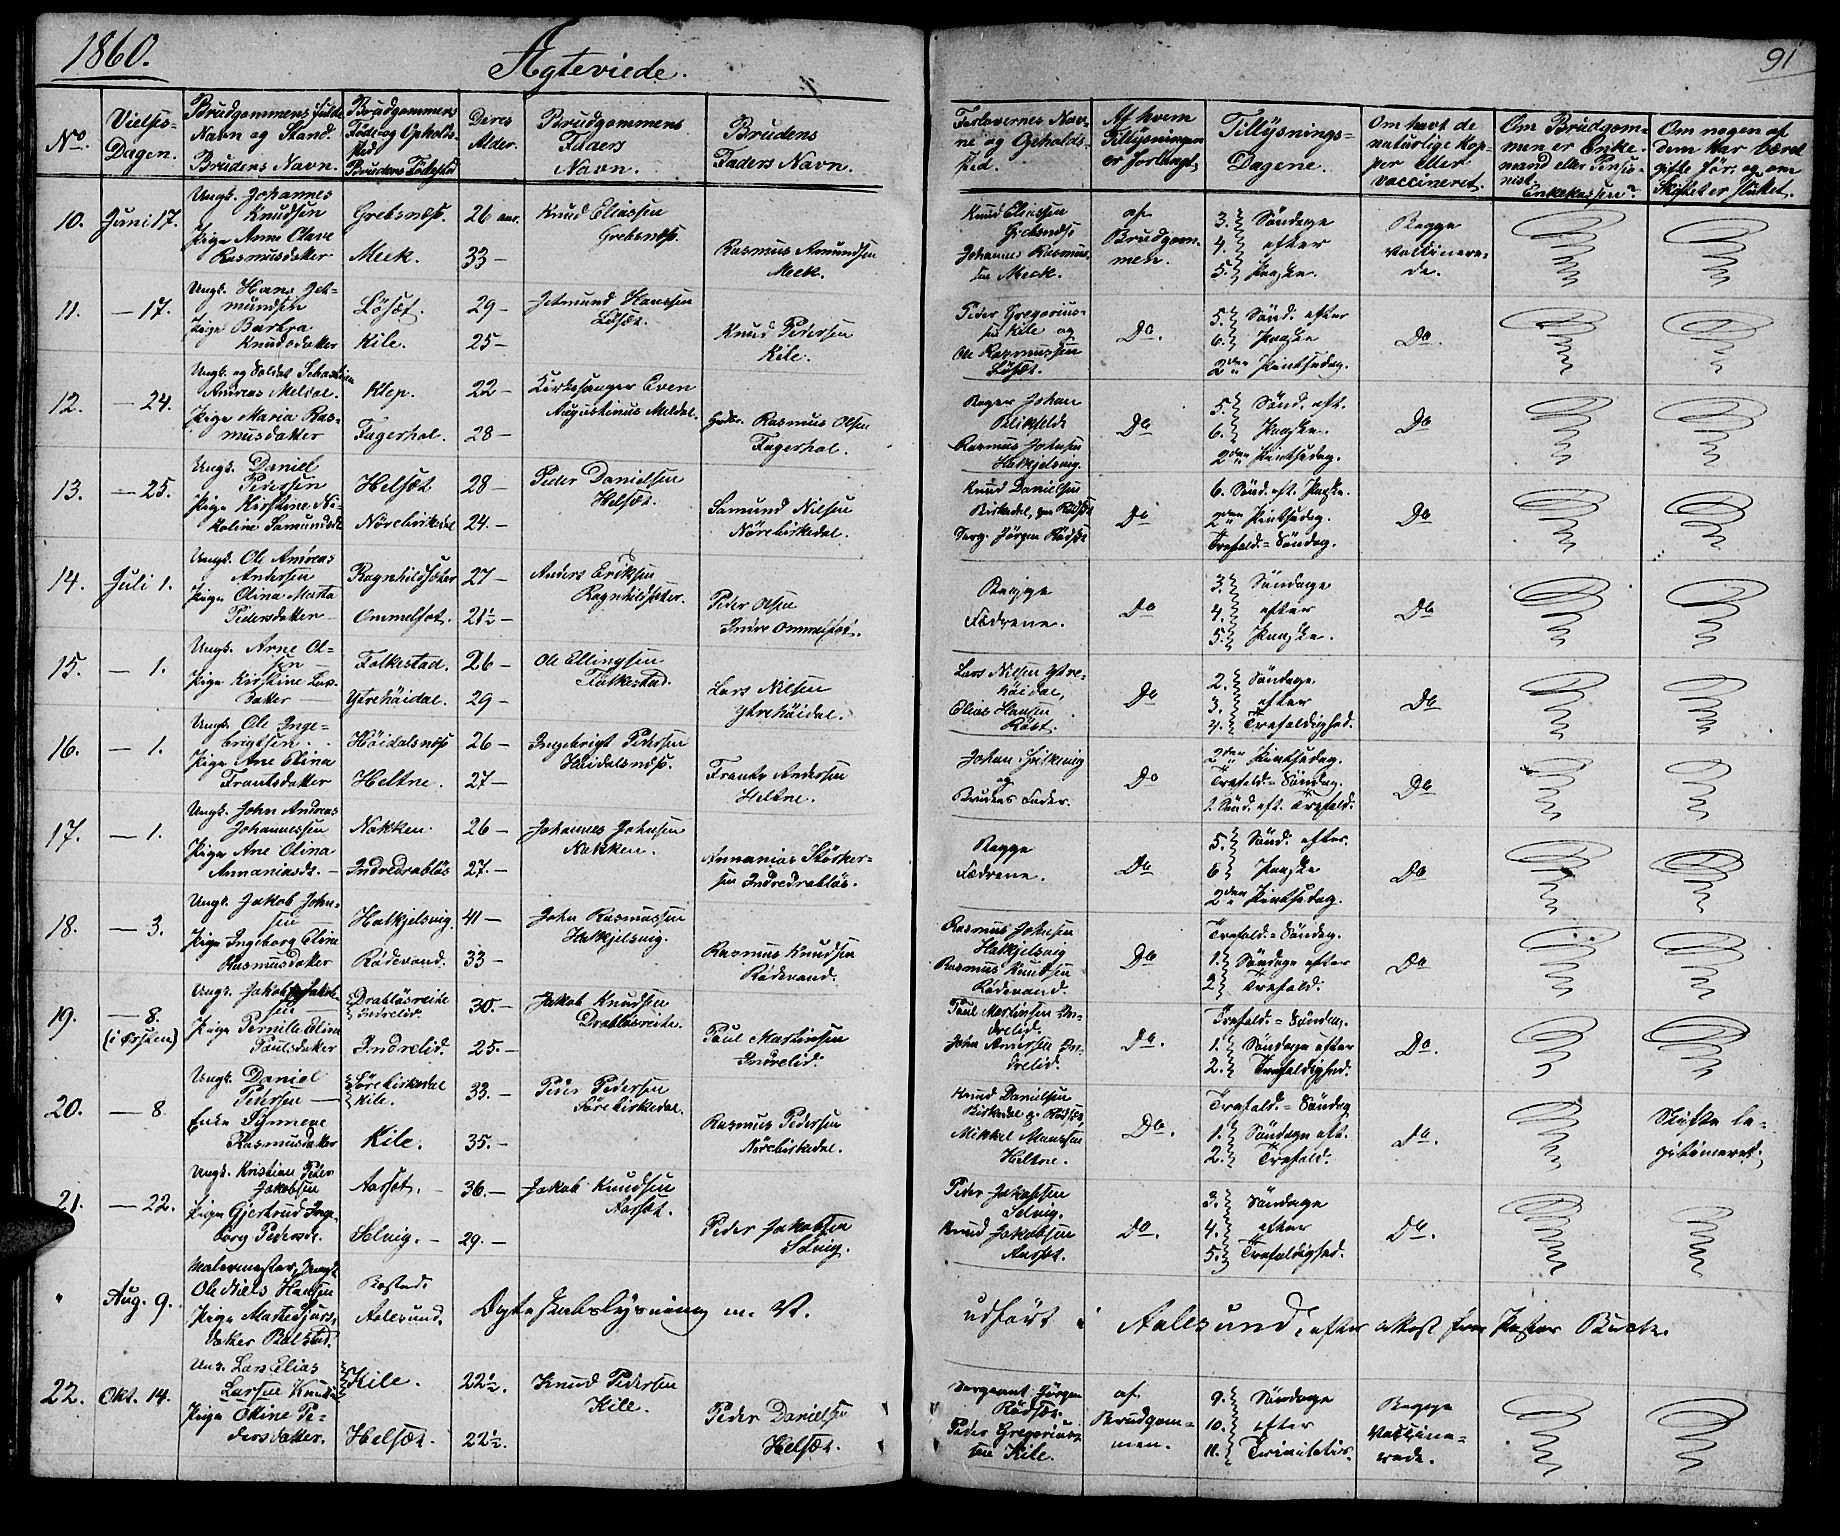 1860.
Ægteviede.
91
No.
Vielses-
Dagen.
Brudgommens fulde
Navn og Stand.
Brudens Navn.
Brudgommens
Føde og Opholds-
sted.
Brudens Fødested
Deres
Alder.
Brudgommens
Faders
Navn.
Brudens
Faders Navn.
Forlovernes Nav-
ne og Opholds-
sted.
Af hvem
Tillysningen
er forlangt.
Tillysnings-
Dagene.
Om havt de
naturlige Kop-
per eller
vaccineret.
Om Brudgom-
men er Enke-
mand eller Pensio-
nist
Enkekassen?
Om nogen af
dem har været
gifte før, og om
Skiftet er sluttet.
10. Juni 17.
Ungk. Johannes
Knudsen
Pige Anne Olave
Rasmusdatter
Grebsnæs.
Meek.
26 aar.
33 –
Knud Eliassen
Grebsnæs.
Rasmus Amundsen
Meek.
Knud Eliassen
Grebsnæs
Johannes Rasmus-
sen Meek.
af
Brudgom-
men.
3. Søndage
4. efter
5. Paaske.
Begge
vaccinere-
de.
11. – 17.
Ungk. Hans Jet-
mundsen
Pige Barbra
Knudsdatter
Løsæt.
Kile.
29 –
25 –
Jetmund Hanssen
Løsæt.
Knud Pedersen
Kile.
Peder Gregorius-
sen Kile og
Ole Rasmussen
Løsæt.
Do.
5. Sønd. efter
6. Paaske
2den Pintsedag.
Do.
12. – 24.
Ungk. og Soldat Sebastian
Andreas Meldal.
Pige Maria Ras-
musdatter
Klep.
Fagerhol.
22 –
28 –
Kirkesanger Even
Augustinus Meldal.
Rasmus Olsen
Fagerhol.
Johan
Rasmus Johnsen
Halkjelsvig.
Do
5. Sønd. eft.
6. Paaske.
2den Pintsedag.
Do
13. – 25.
Ungk. Daniel
Pedersen
Pige Kirstine Ni-
koline Samundsd.
Helsæt
Nørebirkedal
28 –
24. –
Peder Danielsen
Helsæt.
Samund Nilsen
Nørebirkedal.
Knud Danielsen
Birkedal, paa Rødsæt
Serg. Jørgen Rødsæt
Do
6. Sønd. eft. Paaske.
2den Pintsedag.
Trefold.=Søndag.
Do
14. Juli 1.
Ungk. Ole Andreas
Andersen
Pige Olina Marta
Pedersdatter
Ragnhildsæter
Ommelsæt.
27 –
21½ –
Anders Eriksen
Ragnhildsæter.
Peder Olsen
Indre Ommelsæt.
Begge
Fædrene.
Do
3. Søndage
4. efter
5. Paaske.
Do
15. – 1.
Ungk. Arne Ol-
sen –
Pige Kirstine Lars-
datter –
Folkestad.
Ytrehøidal.
26 –
29 –
Ole Ellingsen
Folkestad.
Lars Nilsen
Ytrehøidal.
Lars Nilsen Ytre-
høidal,
Elias Hansen
Do
2. Søndage
3. efter
4. Trefoldighed.
Do
16. – 1.
Ungk. Ole Inge-
brigtsen.
Pige Ane Elina
Frantsdatter
Høidalsnæs
Heltne.
26 –
27 –
Ingebrigt Pedersen
Høidalsnæs.
Frants Andersen
Heltne.
Johan
og
Brudens Fader.
Do
2den Pintsedag.
Trefold.=Søndag.
1. Sønd. eft. Trefold.
Do
17. – 1.
Ungk. John Andreas
Johannessen
Pige Ane Olina
Annaniasdr. –
Nakken.
Indredrabløs
26 –
27. –
Johannes Johnsen
Nakken.
Annanias Størker-
sen Indredrabløs.
Begge
Fædrene.
Do
5. Sønd. efter.
6 Paaske
2den Pintsedag.
Do
18. – 3.
Ungk. Jakob John-
sen –
Pige Ingeborg Elina
Rasmusdatter
Halkjelsvig.
Rødevand.
41 –
33 –
John Rasmussen
Halkjelsvig.
Rasmus Knudsen
Rødevand.
Rasmus Johnsen
Halkjelsvig
Rasmus Knudsen
Rødevand.
Do
Trefold.=Søndag.
1. Søndage efter
2. Trefold.
Do
19. – 8.
(i Ørsten)
Ungk. Jakob Jakob-
sen
Pige Pernille Elina
Paulsdatter
Drabløsreite
Indrelid.
Indrelid.
30. –
25. –
Jakob Knudsen
Drabløsreite.
Paul Martinsen
Indrelid.
Paul Martinsen In-
drelid.
John Andersen In-
drelid.
Do.
Trefold.=Søndag.
1. Søndage efter
2. Trefoldighed.
Do.
20. – 8.
Ungk. Daniel
Pedersen –
Enke Synneve
Rasmusdatter
Sørebirkedal
Kile.
Kile.
33. –
35. –
Peder Pedersen
Sørebirkedal.
Rasmus Pedersen
Nørebirkedal.
Knud Danielsen
Birkedal p. Rødsæt,
Mikkel Monssen
Heltne.
Do.
Trefold.=Søndag
1. Søndage eft.
2. Trefold.
Do.
Skifte le-
gitimeret.
21. – 22.
Ungk. Kristian Peder
Jakobsen
Pige Gjertrud Inge-
borg Pedersdr.
Aarsæt.
Selvig. –
36. –
29. –
Jakob Knudsen
Aarsæt.
Peder Jakobsen
Selvig.
Peder Jakobsen
Selvig.
Knud Jakobsen
Aarsæt.
Do.
3. Søndage
4. efter
5. Trefoldighed.
Do.
" Aug. 9.
Malermester, Ungk.
Ole Niels Hansen
Pige Marte Sjurs-
datter Balstad.
Bosted:
Aalesund.
Ægteskabslysning m. V. udført i Aalesund, efter Attest fra Pastor Buck.
22. Okt. 14.
Ung. Lars Elias
Larsen Knuds
Pige Oline Pe-
dersdatter.
Kile.
Helsæt.
22½.
22½.
Knud Pedersen
Kile.
Peder Danielsen
Helsæt.
Sergeant Jørgen
Rødsæt.
Peder Gregorius-
sen Kile.
af
Brudgom-
men.
9. Søndage
10. efter
11. Trinitatis.
Begge
vaccine-
rede.